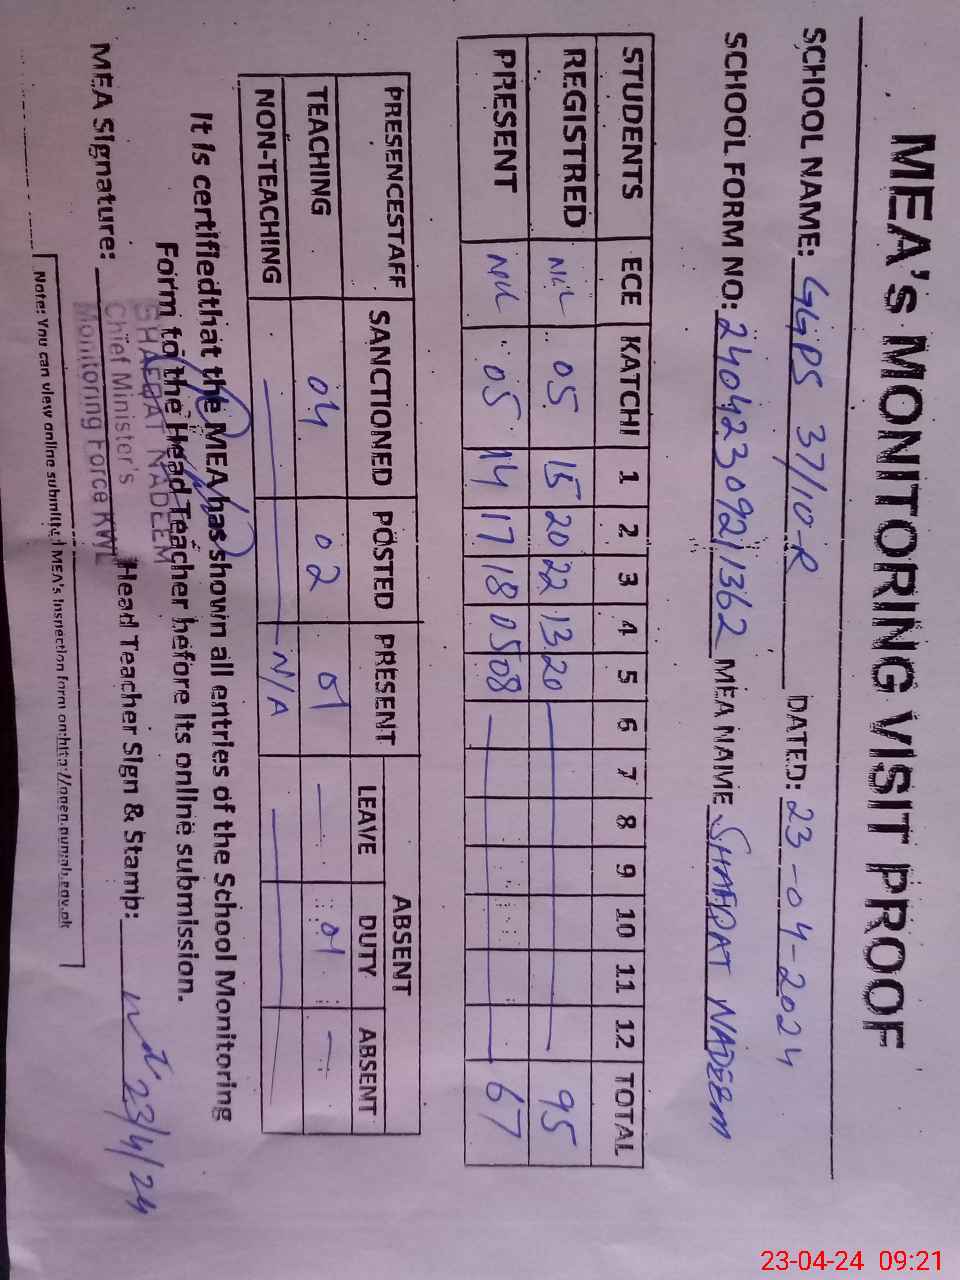 MEA's MONITORING VISIT PROOF
SCHOOL NAME: GGPS 37/10-R DATED: 23-04-2024
SCHOOL FORM NO: 24042309211362 MEA NAME SHAFQAT NADEEM
STUDENTS ECE KATCHI 1 2 3 4 5 6 7 8 9 10 11 12 TOTAL
REGISTRED NIL 05 15 20 22 13 20 95
PRESENT NIL 05 14 17 18 05 08 67
PRESENCESTAFF SANCTIONED POSTED PRESENT ABSENT
LEAVE DUTY ABSENT
TEACHING 04 02 01 — 01 —
NON-TEACHING N/A
It is certifiedthat the MEA has shown all entries of the School Monitoring
Form to the Head Teacher before its online submission.
SHAFQAT NADEEM
Chief Minister's
Monitoring Force KWL
MEA Signature: Head Teacher Sign & Stamp: 23/4/24
Note: You can view online submitted MEA's Inspection form on:http://open.punjab.gov.pk
23-04-24 09:21